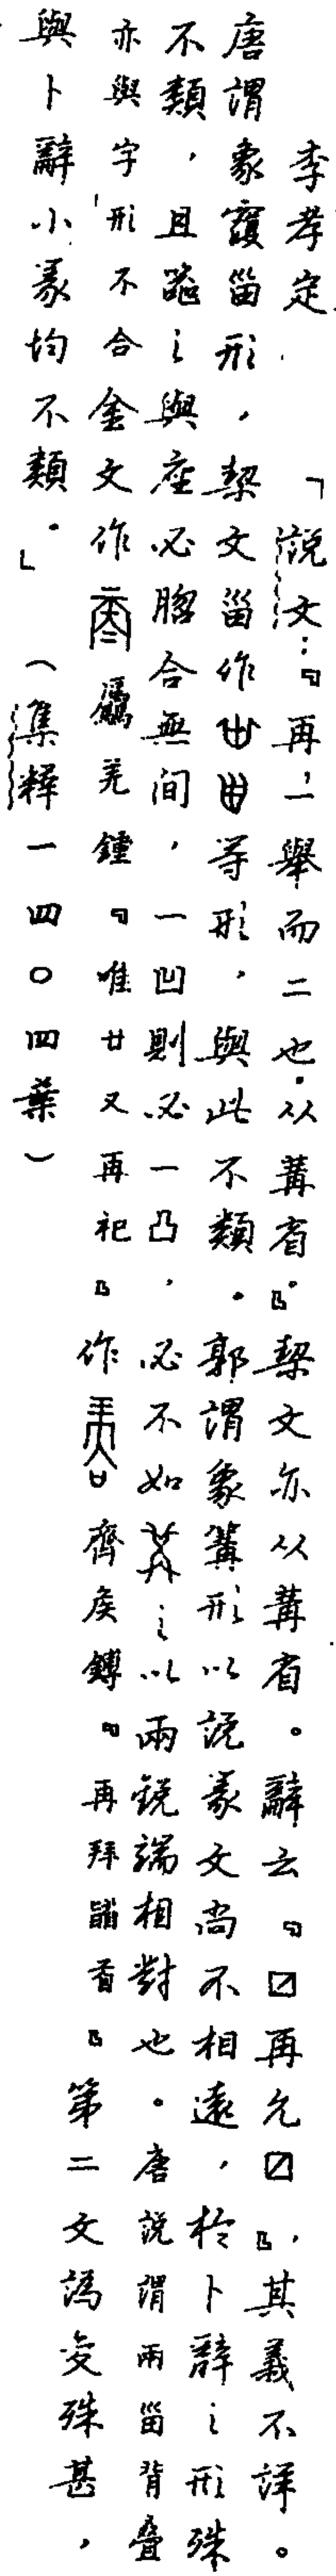 李孝定：「說文：『再，一舉而二也。从冓省。』契文亦从冓省。辭云『☐再允☐』，其義不詳。
唐謂象覆甾形，契文甾作等形，與此不類。郭謂象篝形以說篆文尚不相遠，於卜辭之形殊
不類，且器之與座必脗合無間，一凹則必一凸，必不如之以兩銳端相對也。唐說謂兩甾背疊
亦與字形不合金文作驫羌鐘『唯廿又再祀』作齊侯鎛『再拜䭫首』第二文譌變殊甚，
與卜辭小篆均不類。」（集釋一四〇四葉）